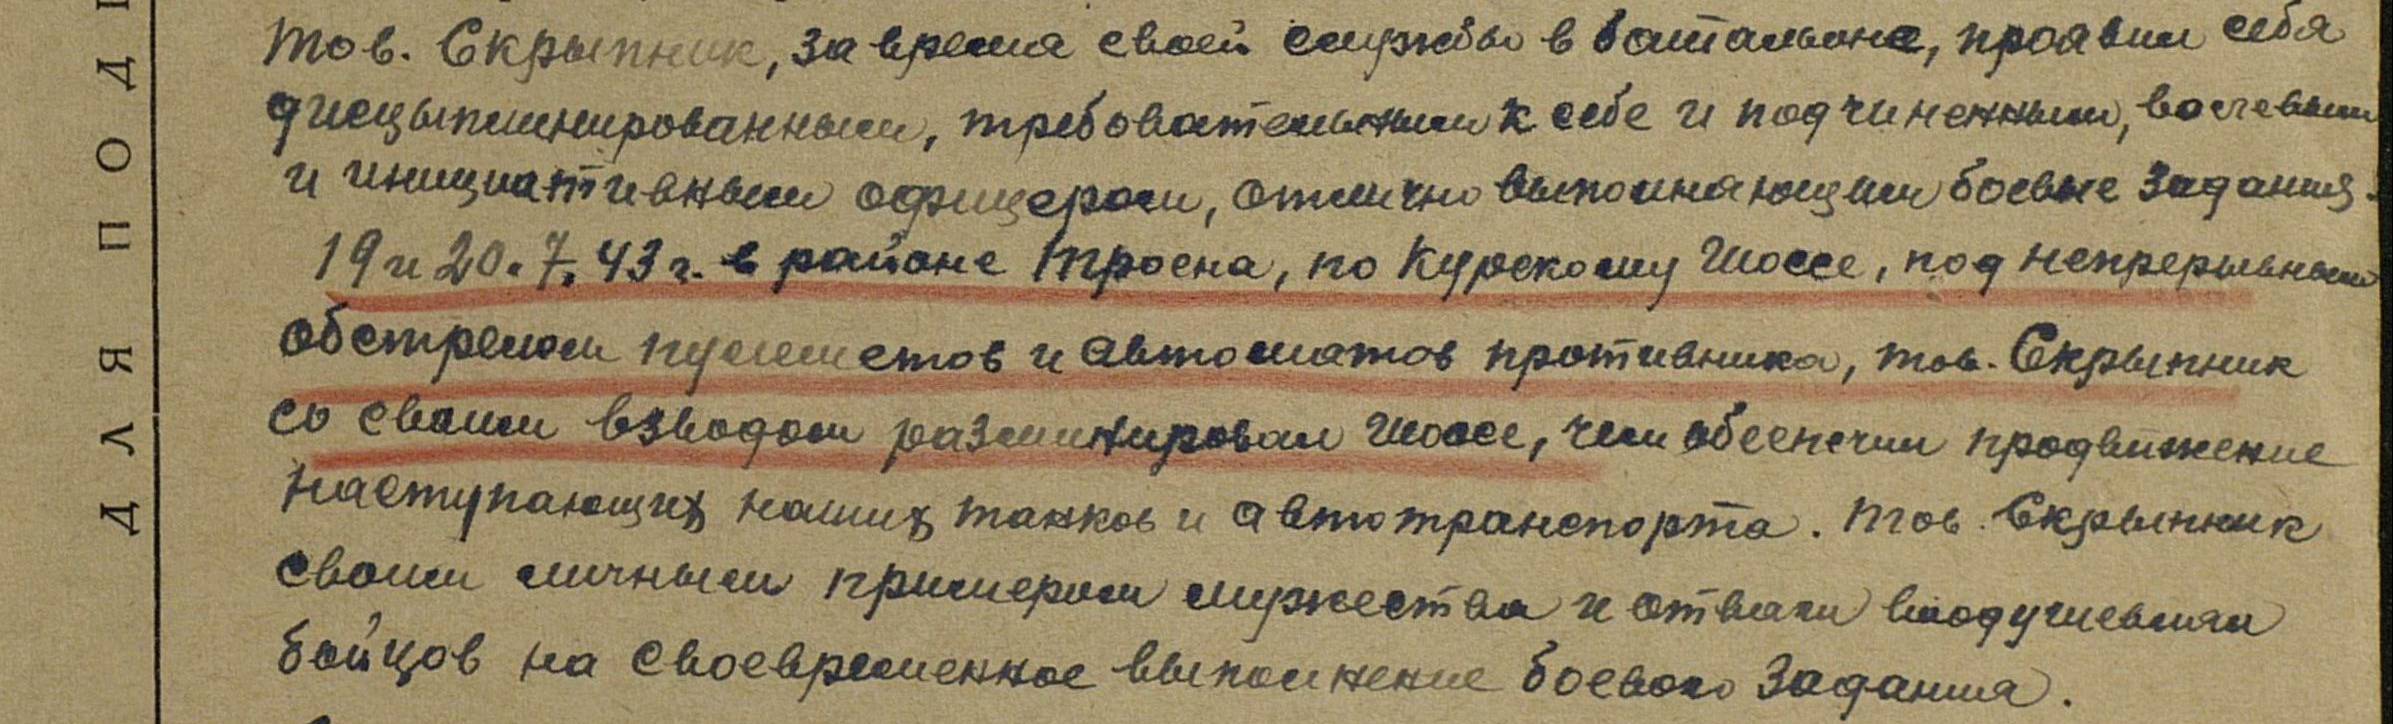 тов. Скрыпник, за время своей службы в батальоне, проявил себя
дисцыплинированным, требовательным к себе и подчиненным, волевым
и инициативным офицером, отлично выполняющим боевые задания.
19 и 20.7.43 г. в районе Тросна, по Курскому шоссе, под непрерывным
обстрелом пулеметов и автоматов противника, тов. Скрыпник
со своим взводом разминировал шоссе, чем обеспечил продвижение
наступающих наших танков и автотранспорта. Тов. Скрыпник
своим личным примером мужества и отваги воодушевлял
бойцов на своевременное выполнение боевого задания.
ДЛЯ ПОД